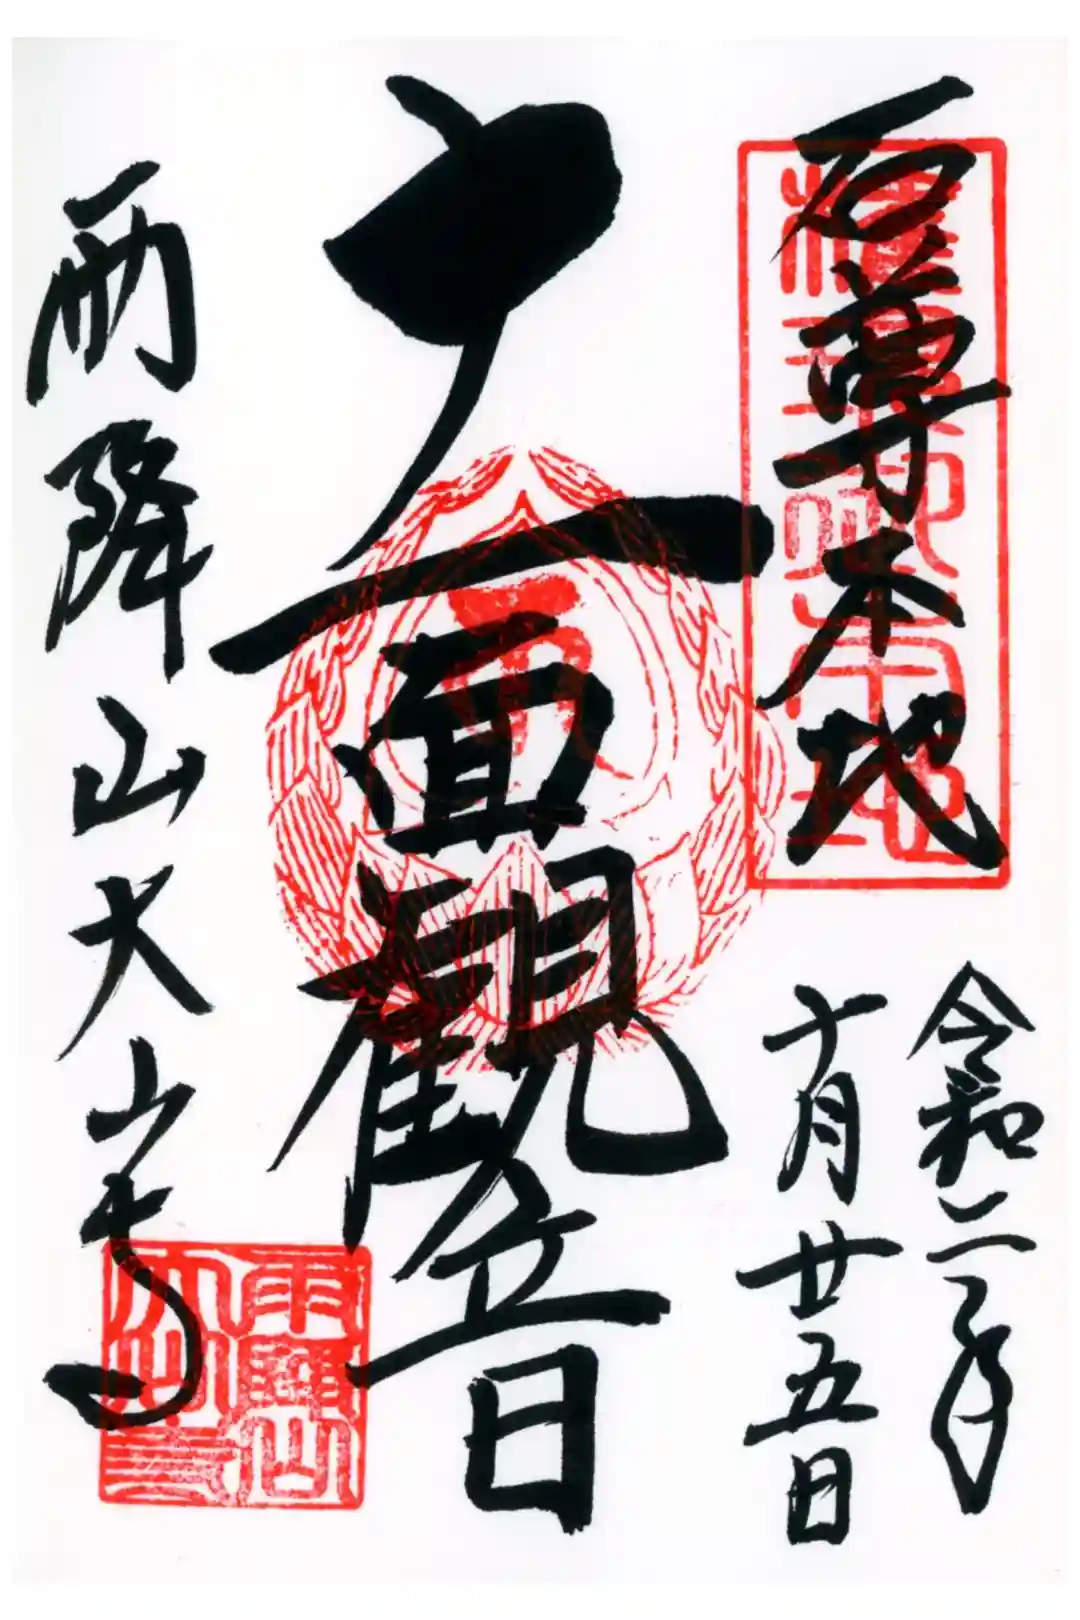 石尊本地
令和二年
十月廿五日
十一面観音
雨降山大山寺